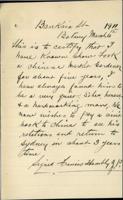 Banksia St 1911
Botany March 16
This is to certify that I
have known Snow Gook
a chinese market Gardener
for about five years, I
have always found him to
be a very quiet, sober honest
& hardworking man. He
now wishes to pay a visit
back to China to see his
relations and return to
Sydney in about 3 years
time
Signed James Stanbly J.P.